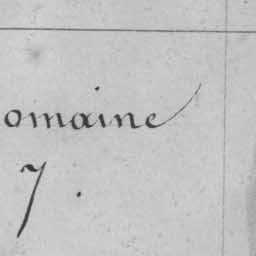 omaine
7.